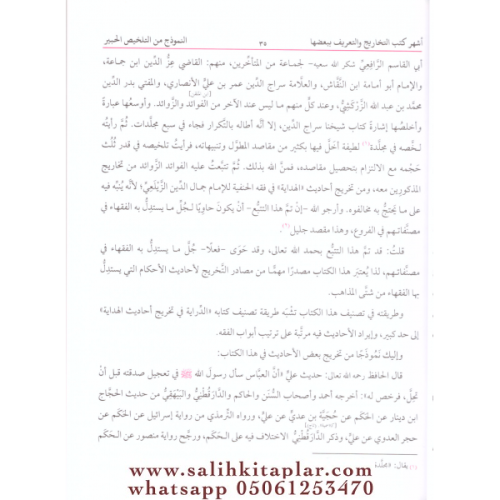 أشهر كتب التخاريج والتعريف ببعضها ٣٥ النموذج من التلخيص الحبير
أبي القاسم الرَّافِعِيِّ شكر الله سعيه- لجماعة من المتأخِّرين، منهم: القاضي عِزُّ الدين ابن جماعة،
والإمام أبو أمامة ابن النَّقَّاش، والعلَّامة سراج الدِّين عمر بن عليٍّ الأنصاري، والمفتي بدر الدِّين
محمَّد بن عبد الله الزَّرْكَشِيُّ، وعند كلٍّ منهم ما ليس عند الآخر من الفوائد والزَّوائد. وأوسعُها عبارةً
وأخلصُها إشارةً كتاب شيخنا سراج الدِّين، إلا أنَّه أطاله بالتَّكرار فجاء في سبع مجلَّدات. ثُمَّ رأيتُه
لـخَّصه في مجلَّدة لطيفة أخلَّ فيها بكثير من مقاصد المطوَّل وتنبيهاته، فرأيت تلخيصه في قدر ثُلُث
حَجْمه مع الالتزام بتحصيل مقاصده، فمنَّ الله بذلك. ثُمَّ تتبَّعتُ عليه الفوائد الزَّوائد من تخاريج
المذكورين معه، ومن تخريج أحاديث «الهداية» في فقه الحنفية للإمام جمال الدِّين الزَّيْلَعِيِّ؛ لأنَّه يُنبِّه فيه
على ما يَحتجُّ به مخالفوه. وأرجو الله -إنْ تمَّ هذا التتبُّع- أنْ يكون حاويًا لـجُلِّ ما يستدِلُّ به الفقهاء في
مصنَّفاتهم في الفروع، وهذا مقصد جليل
قلتُ: قد تمَّ هذا التتبُّع بحمد الله تعالى، وقد حَوَى -فعلًا- جُلَّ ما يستدِلُّ به الفقهاء في
مصنَّفاتهم، لذا يُعتبَر هذا الكتاب مصدرًا مهمًّا من مصادر التَّخريج لأحاديث الأحكام التي يستدِلُّ
بها الفقهاء من شتَّى المذاهب.
وطريقته في تصنيف هذا الكتاب تشبَه طريقة تصنيف كتابه «الدِّراية في تخريج أحاديث الهداية»
إلى حدٍّ كبير، وإيراد الأحاديث فيه مرتَّبة على ترتيب أبواب الفقه.
وإليك نَمُوذجًا من تخريج بعض الأحاديث في هذا الكتاب:
قال الحافظ رحمه الله تعالى: حديث عليٍّ «أنَّ العبَّاس سأل رسول الله ﷺ في تعجيل صدقته قبل أنْ
تحلَّ، فرخص له»: أخرجه أحمد وأصحاب السُّنَن والحاكم والدَّارَقُطْنِيُّ والبَيْهَقِيُّ من حديث الحجَّاج
ابن دينار عن الحَكَم عن حُجَيَّة بن عدي عن عليٍّ، ورواه التِّرمذي من رواية إسرائيل عن الحَكَم عن
حجر العدوي عن عليٍّ، وذكر الدَّارَقُطْنِيُّ الاختلاف فيه على الحَكَم، ورجَّح رواية منصور عن الحَكَم
يقال: «مجلَّد»
www.salihkitaplar.com
whatsapp 05061253470